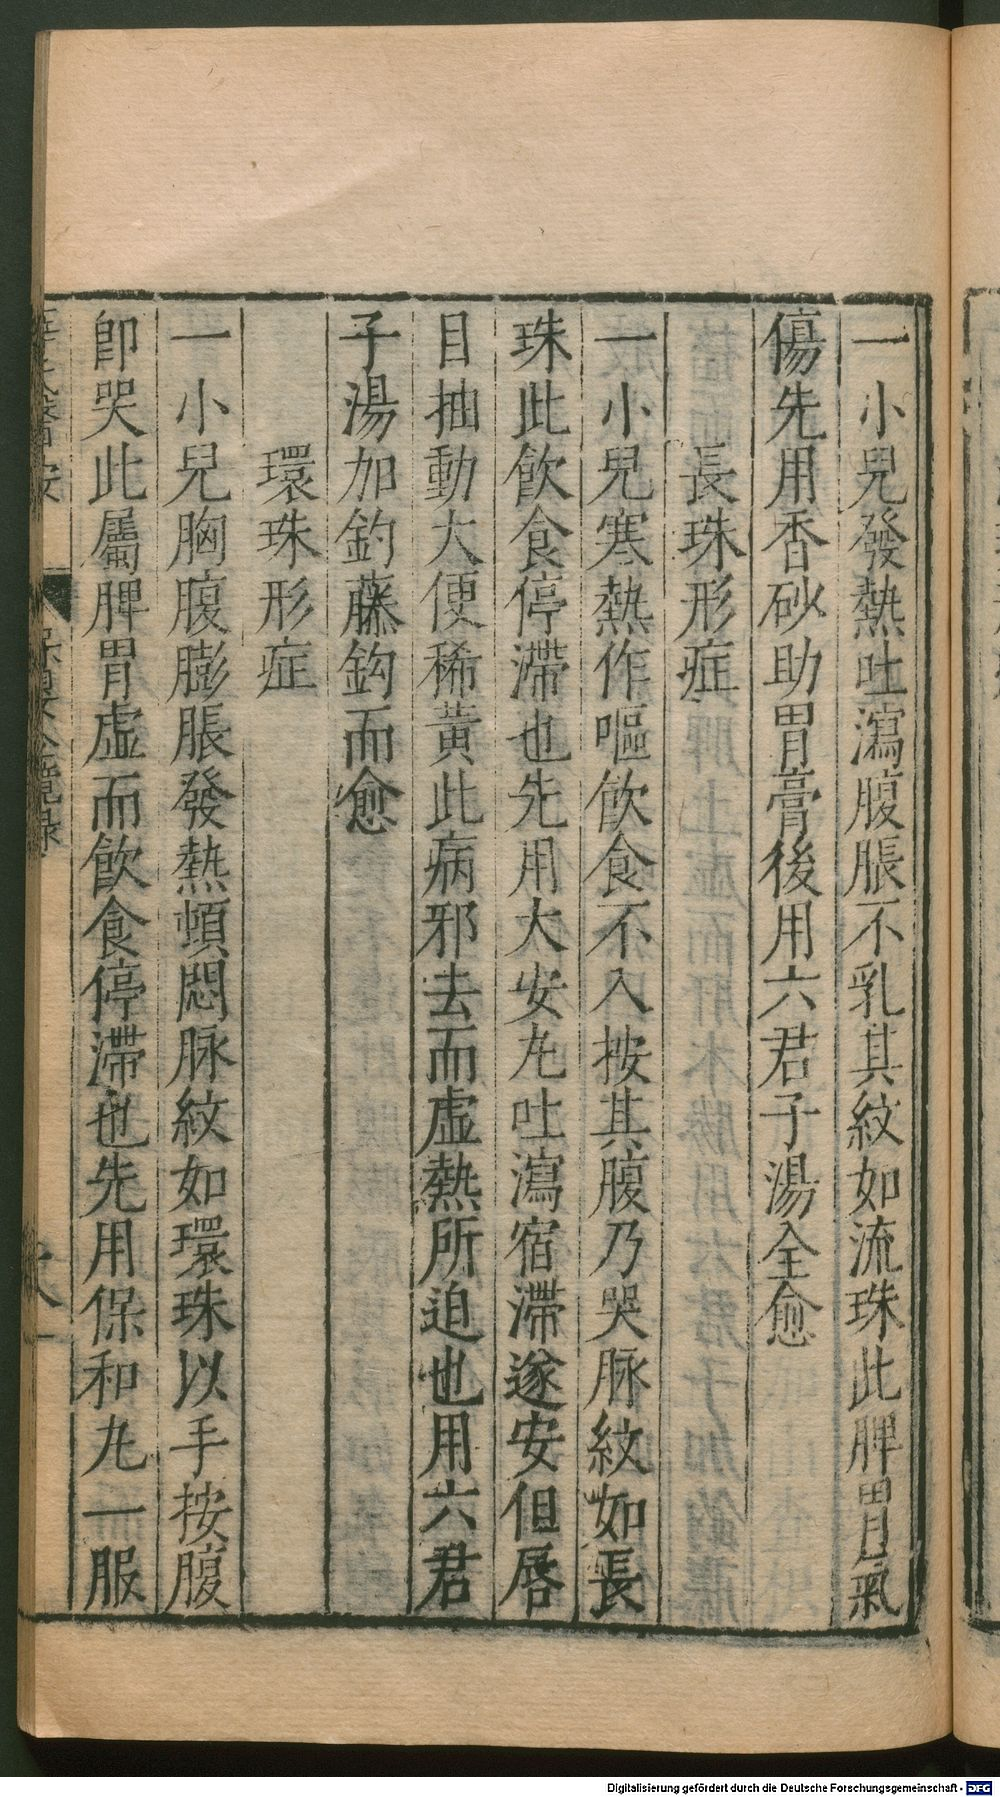 一小兒發熱吐瀉腹脹不乳其紋如流珠此脾胃氣
傷先用香砂助胃膏後用六君子湯全愈
長珠形症
一小兒寒熱作嘔飲食不入按其腹乃哭脉紋如長
珠此飲食停滯也先用大安丸吐瀉宿滯遂安但唇
目抽動大便稀黃此病邪去而虛熱所迫也用六君
子湯加釣藤鈎而愈
環珠形症
一小兒胸腹膨脹發熱頓悶脉紋如環珠以手按腹
即哭此屬脾胃虛而飲食停滯也先用保和丸一服
Digitalisierung gefördert durch die Deutsche Forschungsgemeinschaft - DFG